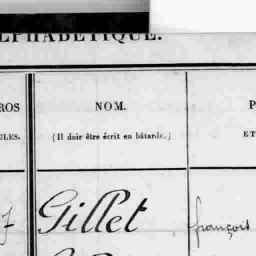 LPHABÉTIQUE.
ROS NOM. P
CLES. (Il doit être écrit en bâtarde.) ET
Gillet françois